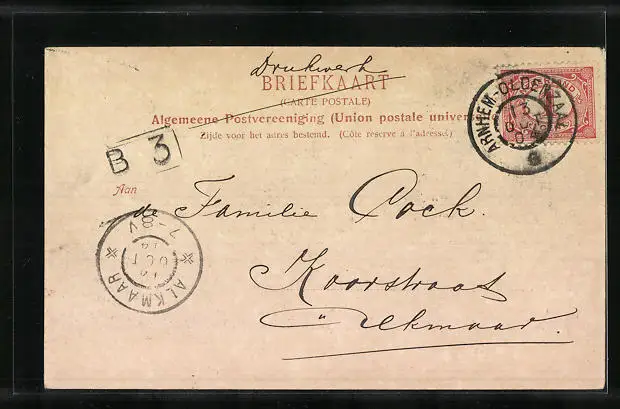 Drukwerk
BRIEFKAART
(CARTE POSTALE)
Algemeene Postvereeniging (Union postale univer
Zijde voor het adres bestemd. (Côté réservé à l'adresse)
ARNHEM-OLDENZAAL
3
OCT
B 3
Aan
de Familie Cock.
Koorstraat
Alkmaar.
ALKMAAR
OCT
7-8V